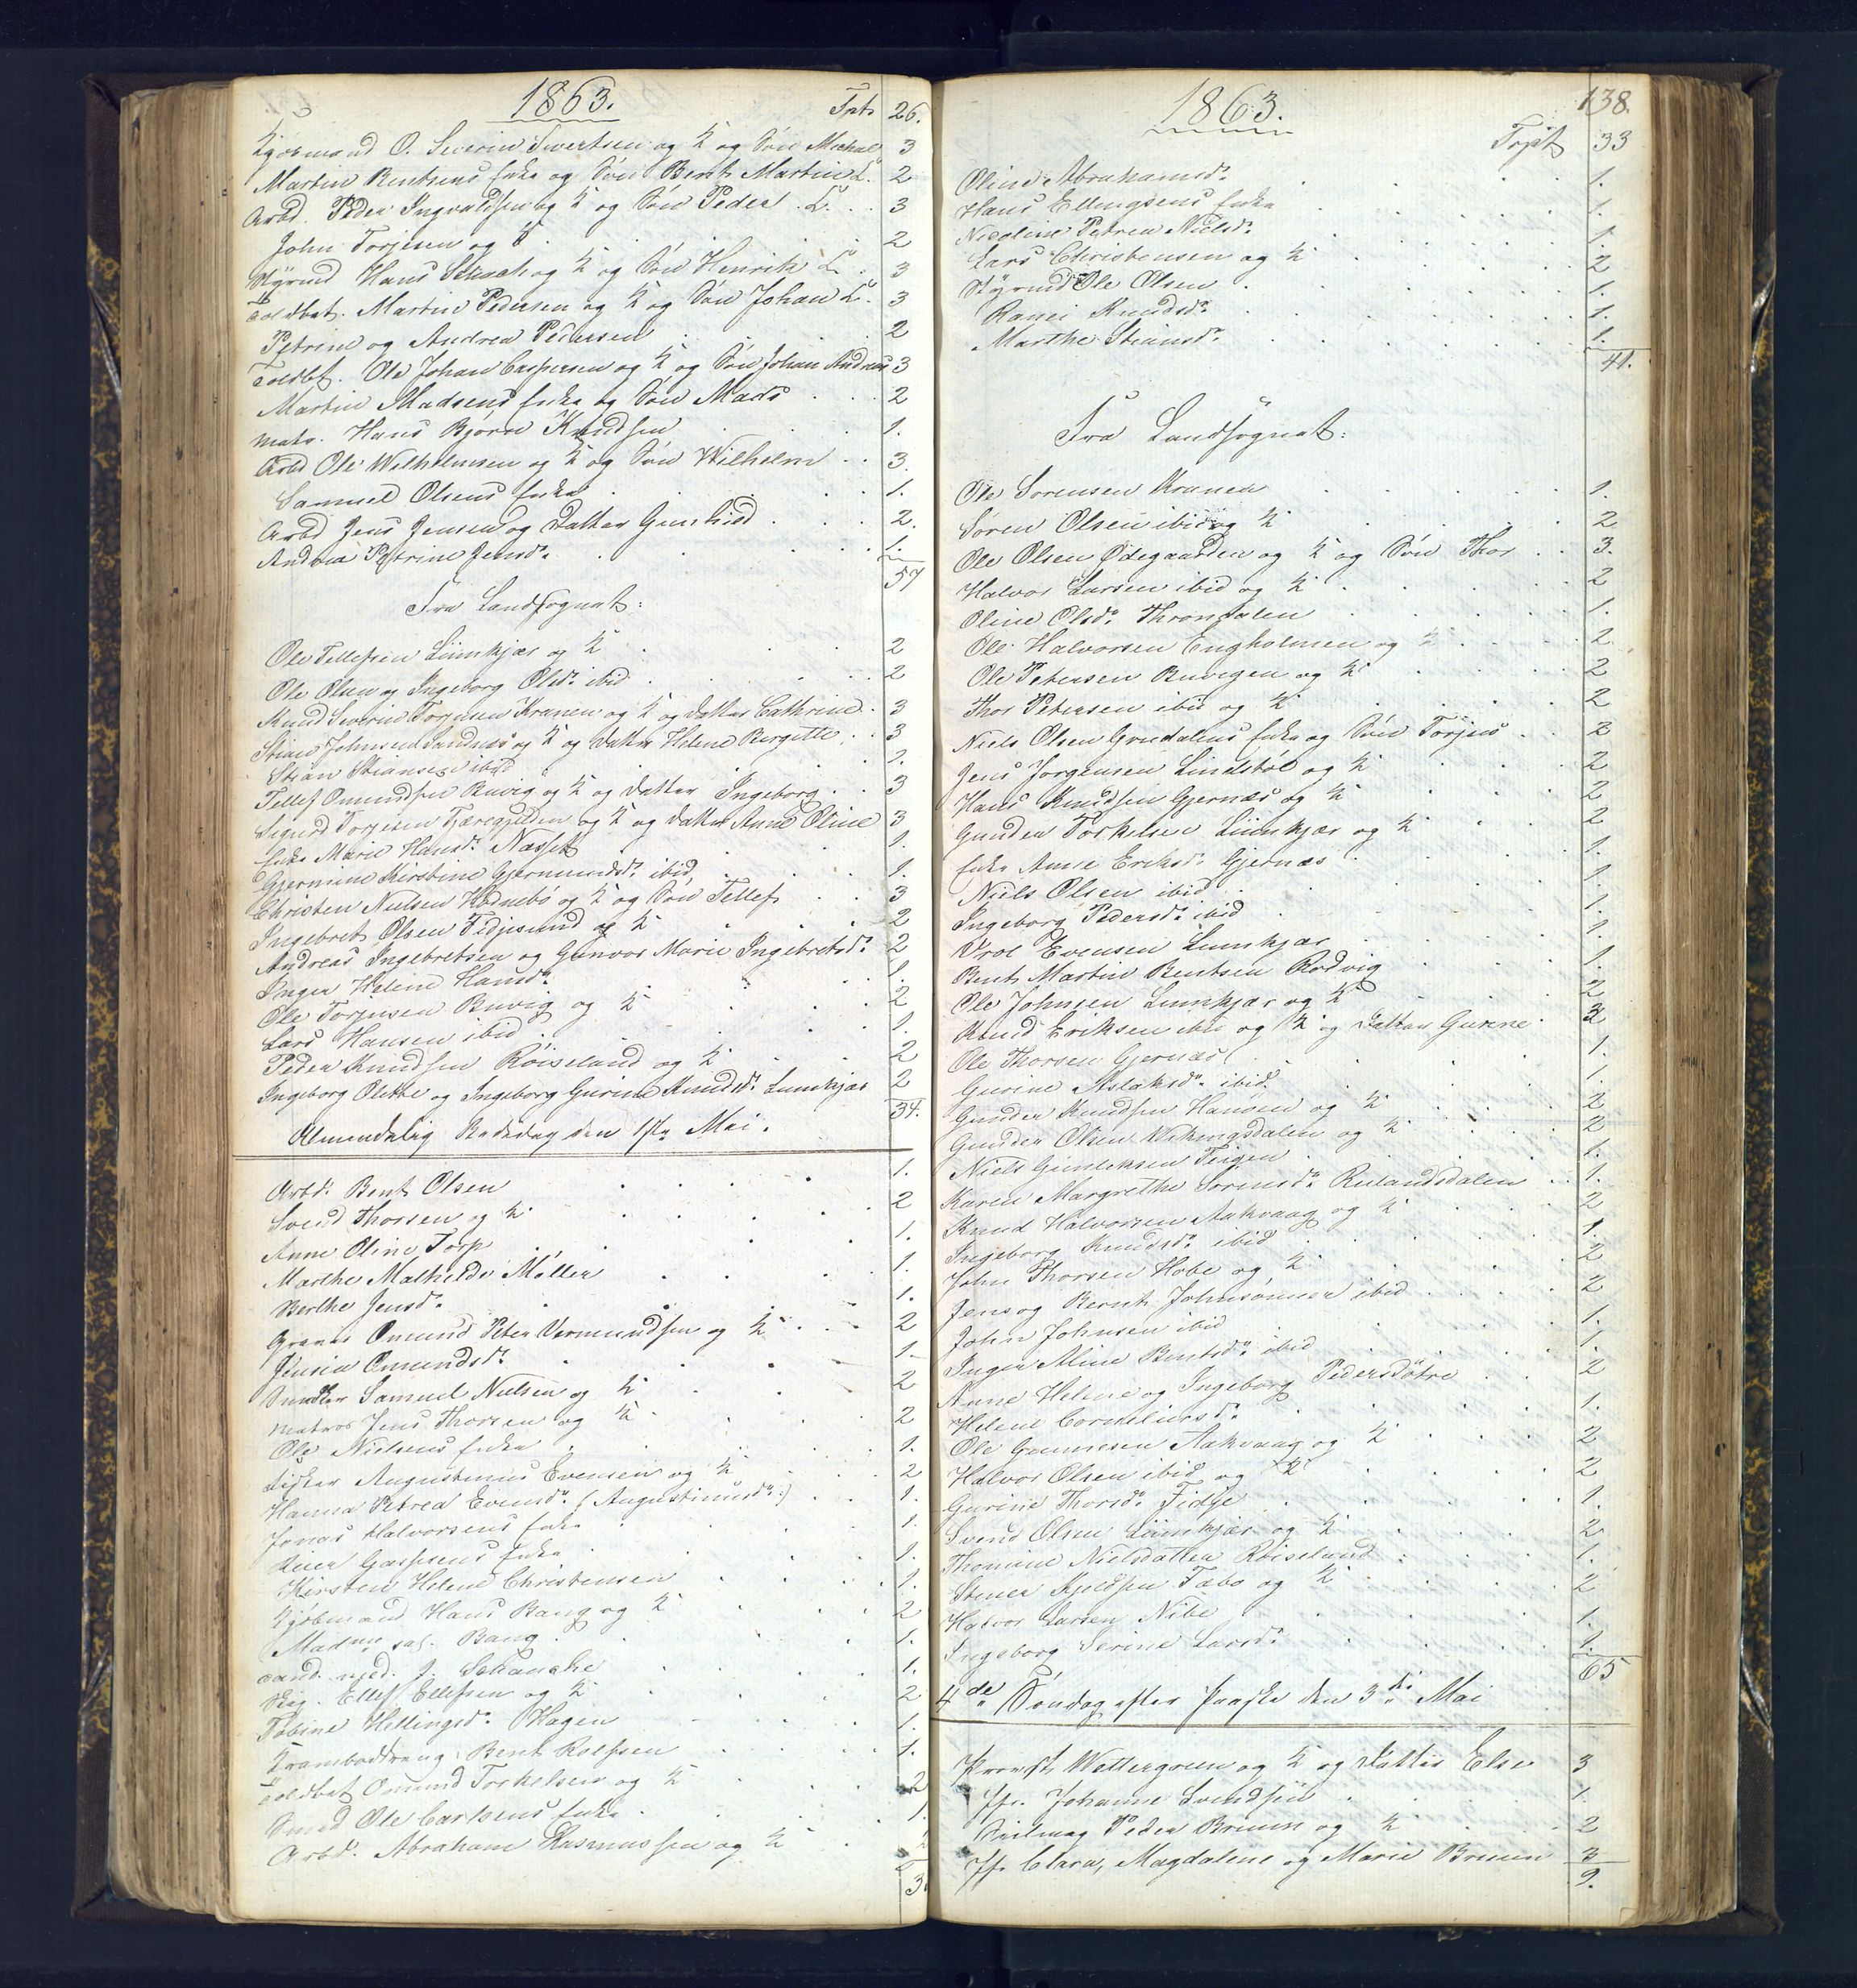 1863.
Tpt. 26.
Kjøbmand O. Severin Sivertsen og K og Søn Michael 3
Martin Bentsens Enke og Søn Bent Martin L. 2
Arbd. Peder Ingvaldsen og K og Søn Peder L. 3
John Torjesen og K 2
Styrmd Hans og K og Søn Henrik L. 3
Toldbet. Martin Pedersen og K og Søn Johan L. 3
Petrine og Andrea Pedersen 2
Toldbt. Ole Johan Caspersen og K og Søn Johan Andreas 3
Martin Madsens Enke og Søn Mads 2
Matr. Hans Bjørn Knudsen 1.
Arbd Ole Wilhelmsen og K og Søn Wilhelm 3.
Samuel Olsens Enke 1.
Arbd Jens Jensen og Datter Gunhild 2.
Andrea Petrine Jensdr. 1.
57
Fra Landsognet:
Ole Tellefsen Lunnkjær og K 2
Ole Olsen og Ingeborg Olsdr. ibid 2
Knud Severin Torjusen Kranen og K og Datter Cathrine 3
Stian Johnsen Sandnæs og K og Datter Helene Birgitte 3
Stian Stiansen ibid 1.
Tellef Omundsen Buvig og K og Datter Ingeborg 3
Sigurd Torjesen og K og Datter Anne Oline 3
Enke Marie Hansdr. Næsset 1.
Gjermine Kirstine Gjermundsdr. ibid 1.
Christen Nielsen Hødnebø og K og Søn Tellef 3
Ingebret Olsen Fidjesund og K 2
Andreas Ingebretsen og Gunvor Marie Ingebretsdr. 2
Inger Helene Hansdr. 1.
Ole Torjusen Buvig og K 2
Lars Hansen ibid 1.
Peder Knudsen Röiseland og K 2
Ingeborg Olette og Ingeborg Gurine Knudsdr. Lunnkjær 2
34.
Almindelig Bededag den 1ste Mai.
Arbd. Bent Olsen 1.
Svend Thorsen og K 2
Anne Oline Torp 1.
Marthe Mathilde Møller 1.
Berthe Jensdr. 1.
Omund Peter Vermundsen og K 2
Jensia Omundsdr. 1.
Snedker Samuel Nielsen og K 2
Matros Jens Thorsen og K 2
Ole Nielsens Enke 1.
Fisker Augustinus Evensen og K 2
Hanna Petrea Evensdr. (Augustinusdr.) 1.
Jonas Halvorsens Enke 1.
Reier Gaspens Enke 1.
Kirsten Helene Christensen 1.
Kjøbmand Hans Bang og K 2
Madme sal. Bang 1.
Cand. med. J. Schanche 1.
Skip. Ellef Ellefsen og K 2
Tobine Hellingsdr. Hagen 1.
Kramboddreng Bent Rolfsen 1.
Toldbet Omund Torkelsen og K 2
Smed Ole Carlsens Enke 1.
Arbd. Abraham Rasmussen og K 2
3
1863.
138.
Tspt 33
Oline Abrahamsdr. 1.
Hans Ellingsens Enke 1.
Nicoline Petrea Nielsdr. 1.
Lars Christensen og K 2
Styrmd Ole Olsen 1.
Ranei Knudsdr. 1.
Marthe Stiansdr. 1.
41.
Fra Landsognet:
Ole Sørensen Kranen 1.
Søren Olsen ibid og K 2
Ole Olsen Ødegaarden og K og Søn Thor 3.
Halvor Larsen ibid og K 2
Oline Olsdr. Thromdalen 1.
Ole Halvorsen Engholmen og K 2.
Ole Petersen Buvigen og K 2
Thor Petersen ibid og K 2
Niels Olsen Grudalens Enke og Søn Torjus 2
Jens Jørgensen Lindstøl og K 2
Hans Knudsen Gjernæs og K 2
Gunder Torkelsen Lunnkjær og K 2
Enke Anne Eriksdr. Gjernæs 1.
Niels Olsen ibid 1.
Ingeborg Pedersdr. ibid 1.
Troe Evensen Lunnkjær 1.
Bent Martin Bentsen Rødvig 1.
Ole Johnsen Lunnkjær og K 2
Knud Eriksen ibid og K og Datter Gurine 3
Ole Thorsen Gjernæs 1.
Gurine Aslaksdr. ibid. 1.
Gunder Knudsen Hanøen og K 2
Gunder Olsen Vikingsdalen og K 2
Niels Gunleksen Teigen 1.
Karen Margrethe Sørensdr. Reilandsdalen 1.
Knud Halvorsen Aakvaag og K 2
Ingeborg Knudsdr. ibid 1.
John Thorsen Hobe og K 2
Jens og Bernt Johnsønner ibid 2
John Johnsen ibid 1.
Inger Aline Bentsdr. ibid 1.
Anne Helene og Ingeborg Pedersdøtre 2
Helene Corneliusdr. 1.
Ole Gunnesen Aakvaag og K 2
Halvor Olsen ibid og K 2
Gurine Thorsdr. Fidje 1.
Svend Olsen Lunnkjær og K 2
Thomine Nielsdatter Röiseland 1.
Stener Kjeldsen Tabo og K 2
Halvor Larsen Nibe 1.
Ingeborg Serine Larsdr. 1.
65
4de Søndag efter Paaske den 3die Mai
Provst Wettergreen og K og Datter Else 3
Jfr. Johanne Svendsen 1.
Seilmag Peder Bruun og K 2
Jfr. Clara, Magdalene og Marie Bruun 3
9.